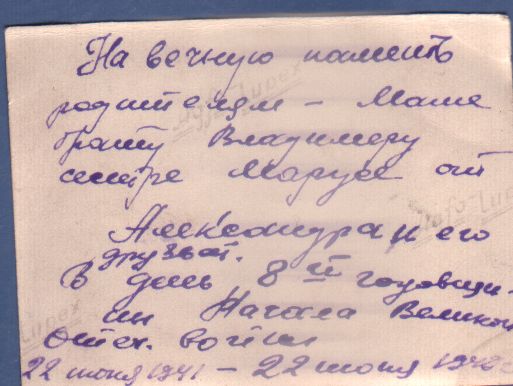 На вечную память
родителям – Маме
брату Владимеру
сестре Марусе от
Александра и его
друзьей.
В день 8 ой годовщи-
ны Начала Великой
Отеч. войны
22 июня 1941 – 22 июня
Agfa-Lupex
Agfa-Lupex
Lupex